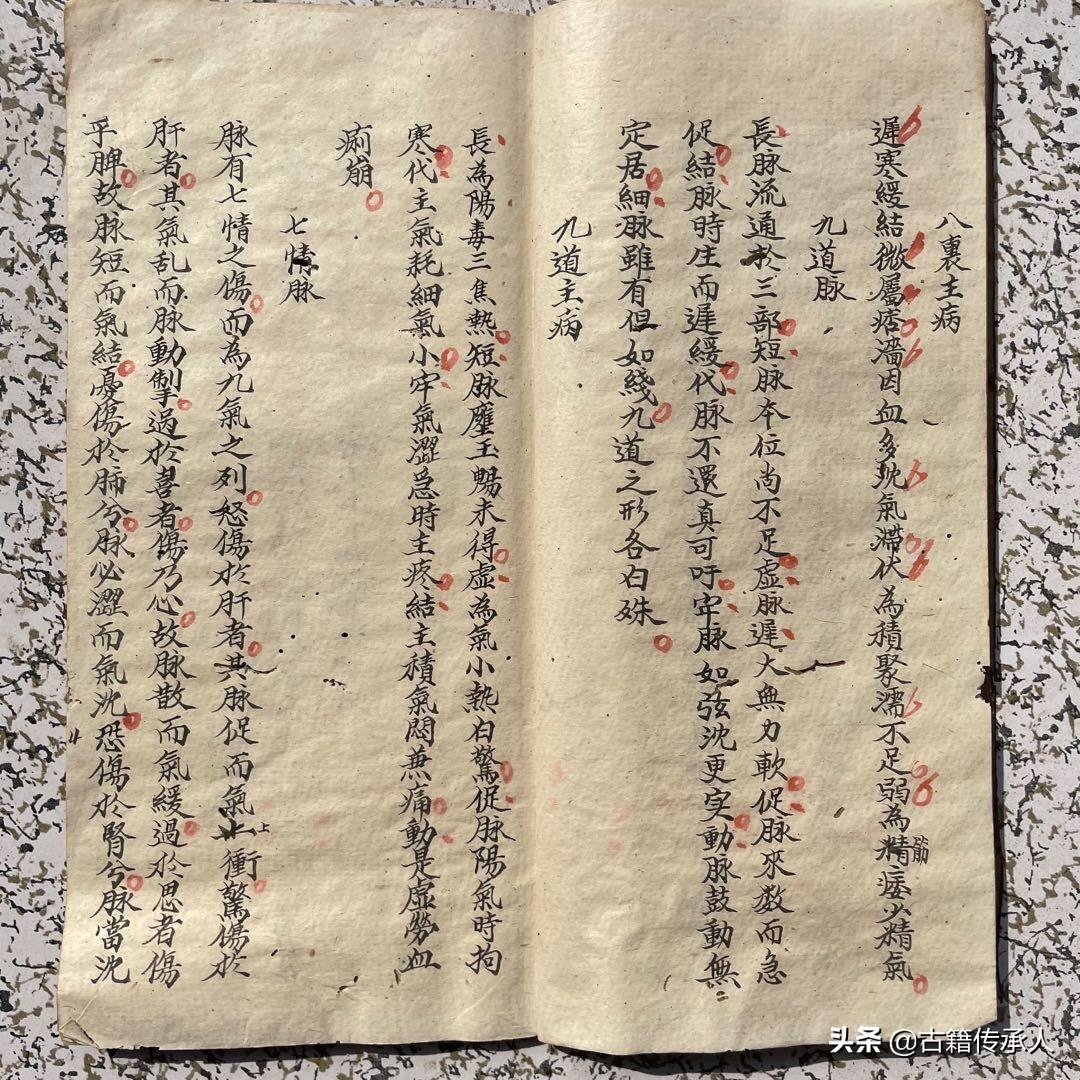 八裏主病
遲寒緩結微屬痞濇因血多沈氣滞伏為積聚濡不足弱為精痿少精氣
筋
九道脉
長脉流通於三部短脉本位尚不足虛脉遲大無力軟促脉來数而急
促結脉時生而遲緩代脉不還真可吁牢脉如弦沈更实動脉鼓動無
定居細脉雖有但如綫九道之形各自殊
九道主病
長為陽毒三焦熱短脉壅玉賜未得虛為氣小熱白驚促脉陽氣時拘
寒代主氣耗細氣小牢氣澀急時主疼結主積氣悶蕉痛動是虛勞血
痢崩
七情脉
脉有七情之傷而為九氣之列怒傷於肝者其脉促而氣上衝驚傷於
上
肝者其氣乱而脉動掣過於喜者傷乃心故脉散而氣緩過於思者傷
乎脾故脉短而氣結憂傷於肺兮脉必澀而氣沈恐傷於腎兮脉當沈
头条 @古籍传承人